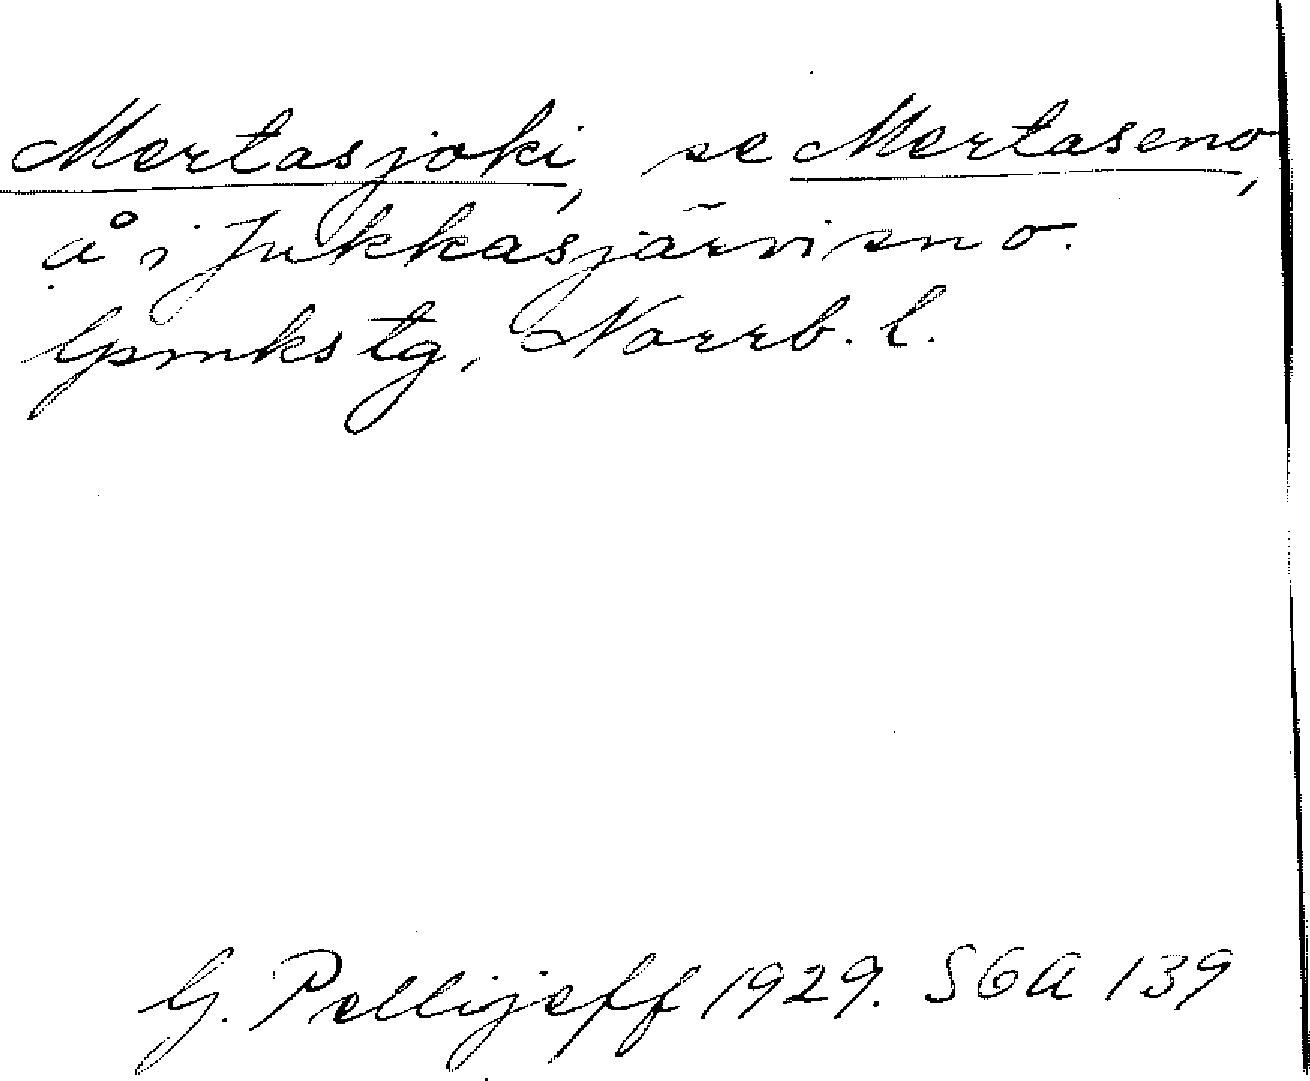 Mertasjoki, se Mertaseno,
å i Jukkasjärvi sn o.
Gpmkstg, Norrb. l.
G. Pellijeff 1929. SGA 139